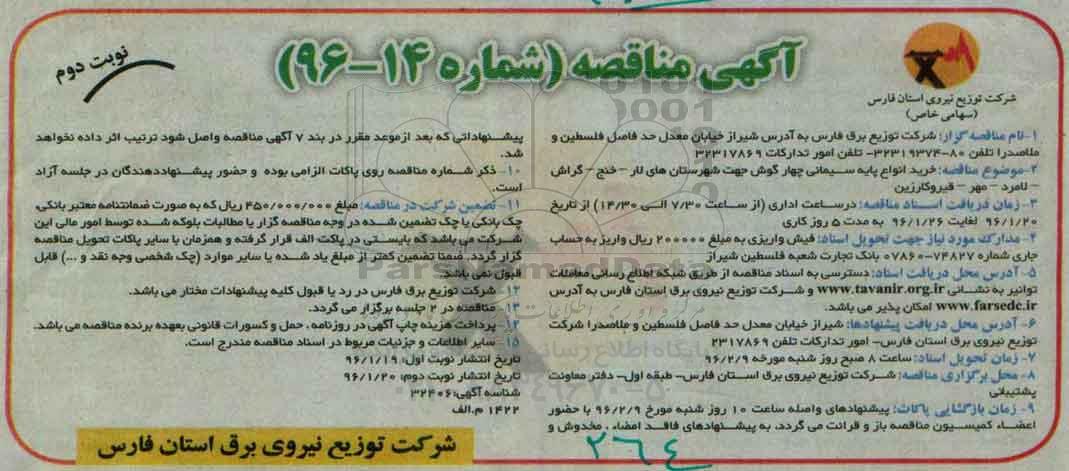 آگهی مناقصه (شماره ۱۴-۹۶)
نوبت دوم
شرکت توزیع نیروی استان فارس
(سهامی خاص)
۱-نام مناقصه گزار: شرکت توزیع برق فارس به آدرس شیراز خیابان معدل حد فاصل فلسطین و
ملاصدرا تلفن ۸۰-۳۲۳۱۹۳۷۴- تلفن امور تدارکات ۳۲۳۱۷۸۶۹
۲-موضوع مناقصه: خرید انواع پایه سیمانی چهار گوش جهت شهرستان های لار – خنج – گراش
– لامرد – مهر – قیروکارزین
۳- زمان دریافت اسناد مناقصه: درساعت اداری (از ساعت ۷/۳۰ الی ۱۴/۳۰) از تاریخ
۹۶/۱/۲۰ لغایت ۹۶/۱/۲۶ به مدت ۵ روز کاری
۴- مدارک مورد نیاز جهت تحویل اسناد: فیش واریزی به مبلغ ۲۰۰۰۰۰ ریال واریز به حساب
جاری شماره ۷۴۸۲۷-۰۷۸۶۰ بانک تجارت شعبه فلسطین شیراز
۵- آدرس محل دریافت اسناد: دسترسی به اسناد مناقصه از طریق شبکه اطلاع رسانی معاملات
توانیر به نشانی www.tavanir.org.ir و شرکت توزیع نیروی برق استان فارس به آدرس
www.farsedc.ir امکان پذیر می باشد.
۶- آدرس محل دریافت پیشنهادها: شیراز خیابان معدل حد فاصل فلسطین و ملاصدرا شرکت
توزیع نیروی برق استان فارس- امور تدارکات تلفن ۲۳۱۷۸۶۹
۷- زمان تحویل اسناد: ساعت ۸ صبح روز شنبه مورخه ۹۶/۲/۹
۸- محل برگزاری مناقصه: شرکت توزیع نیروی برق استان فارس- طبقه اول- دفتر معاونت
پشتیبانی
۹- زمان بازگشایی پاکات: پیشنهادهای واصله ساعت ۱۰ روز شنبه مورخ ۹۶/۲/۹ با حضور
اعضاء کمیسیون مناقصه باز و قرائت می گردد. به پیشنهادهای فاقد امضاء ، مخدوش و
پیشنهاداتی که بعد ازموعد مقرر در بند ۷ آگهی مناقصه واصل شود ترتیب اثر داده نخواهد
شد.
۱۰- ذکر شماره مناقصه روی پاکات الزامی بوده و حضور پیشنهاددهندگان در جلسه آزاد
است.
۱۱- تضمین شرکت در مناقصه: مبلغ ۴۵۰/۰۰۰/۰۰۰ ریال که به صورت ضمانتنامه معتبر بانکی،
چک بانکی یا چک تضمین شده در وجه مناقصه گزار یا مطالبات بلوکه شده توسط امور مالی این
شرکت می باشد که بایستی در پاکت الف قرار گرفته و همزمان با سایر پاکات تحویل مناقصه
گزار گردد. ضمنا تضمین کمتر از مبلغ یاد شده یا سایر موارد (چک شخصی وجه نقد و ...) قابل
قبول نمی باشد.
۱۲- شرکت توزیع برق فارس در رد یا قبول کلیه پیشنهادات مختار می باشد.
۱۳- مناقصه در ۲ جلسه برگزار می گردد.
۱۴- پرداخت هزینه چاپ آگهی در روزنامه ، حمل و کسورات قانونی بعهده برنده مناقصه می باشد.
۱۵- سایر اطلاعات و جزئیات مربوط در اسناد مناقصه مندرج است.
تاریخ انتشار نوبت اول: ۹۶/۱/۱۹
تاریخ انتشار نوبت دوم: ۹۶/۱/۲۰
شناسه آگهی: ۳۲۴۰۶
۱۴۲۲ م.الف
شرکت توزیع نیروی برق استان فارس
۲۶۴